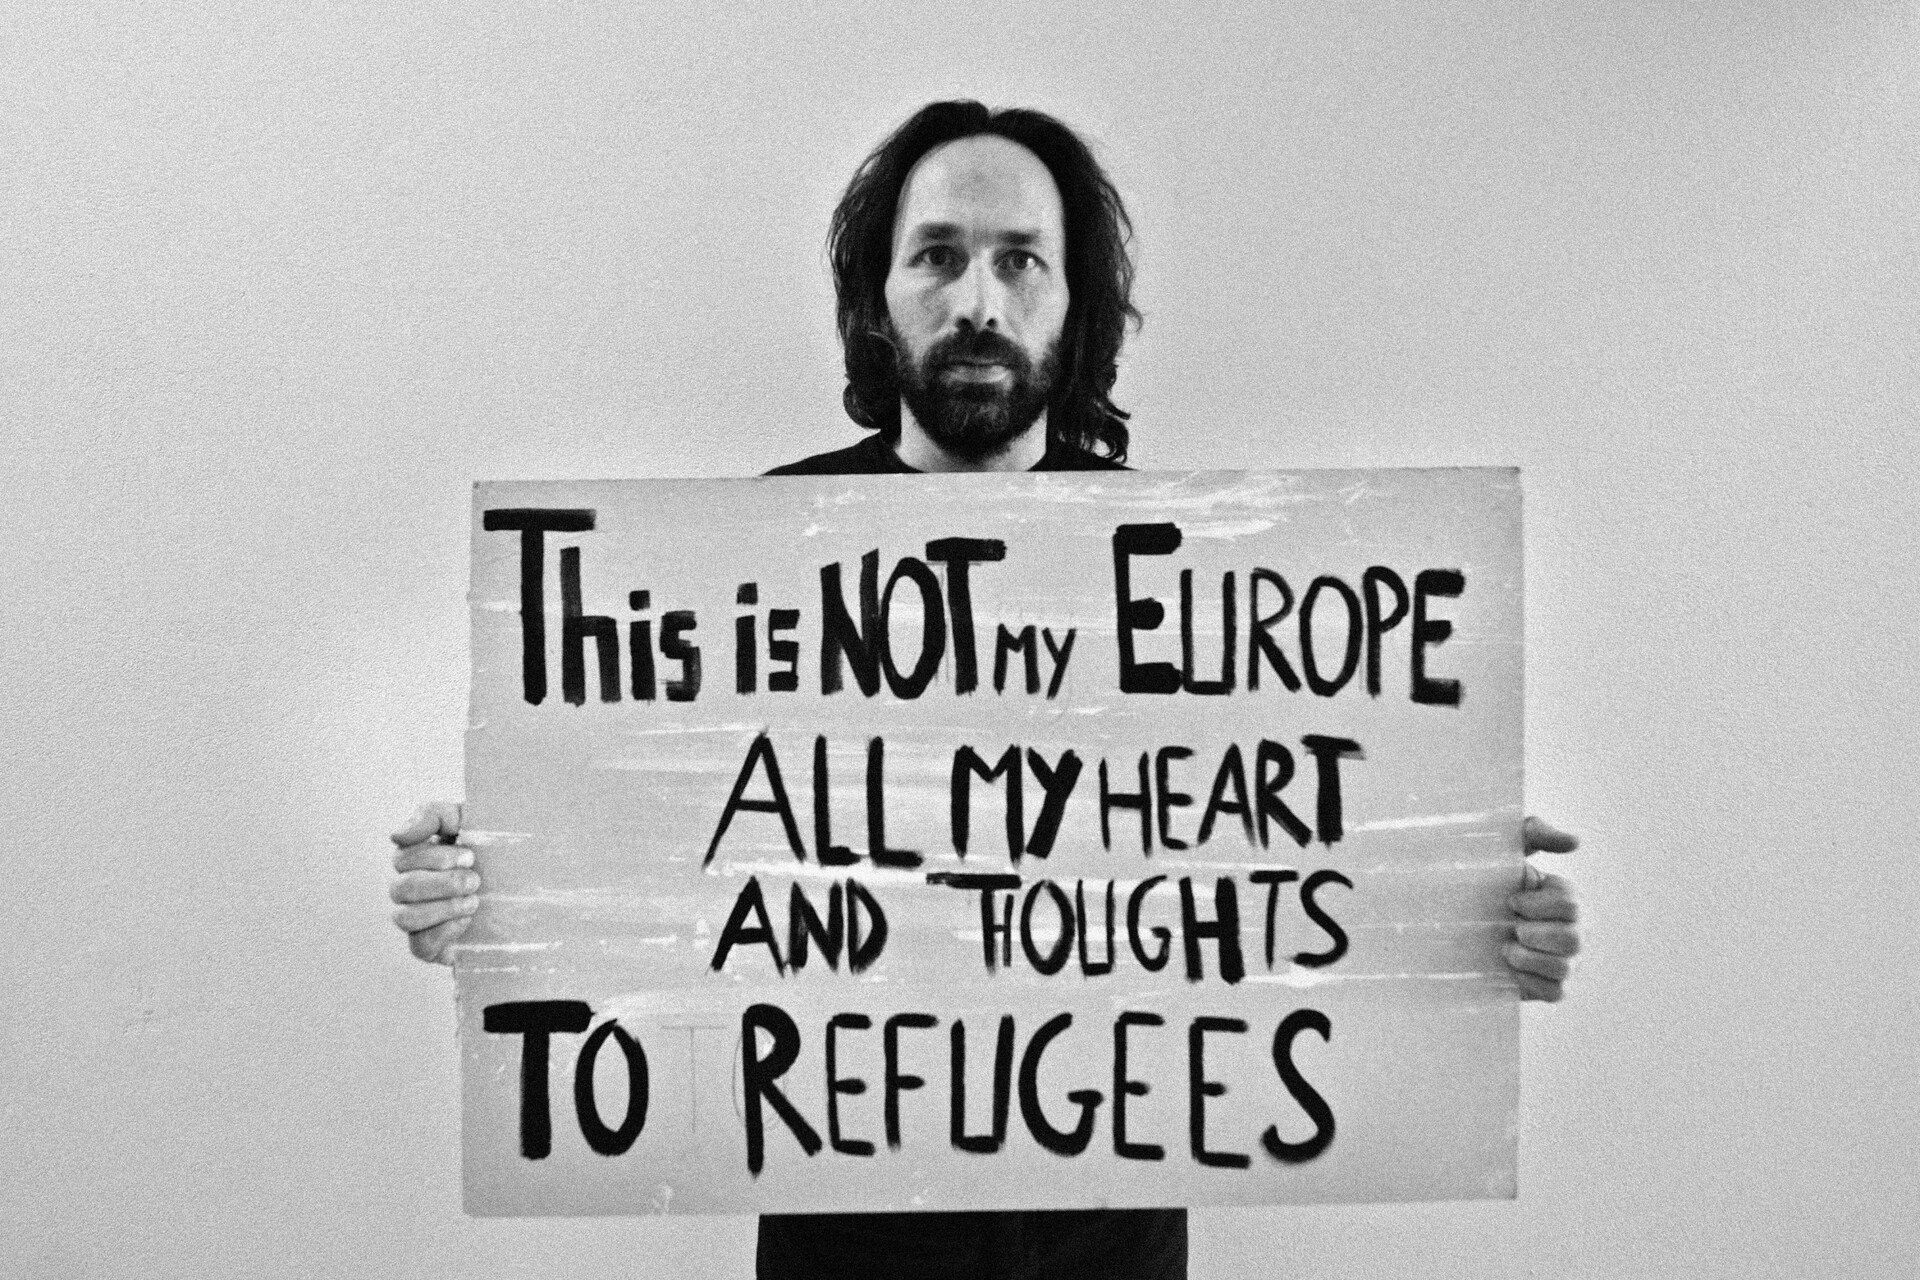 This is NOT MY EUROPE
ALL MY HEART
AND THOUGHTS
TO REFUGEES